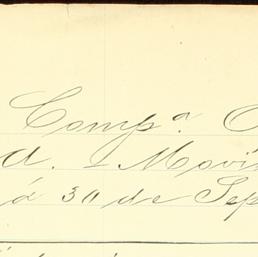 Compª. C
d. - Movi
á 30 de Sep